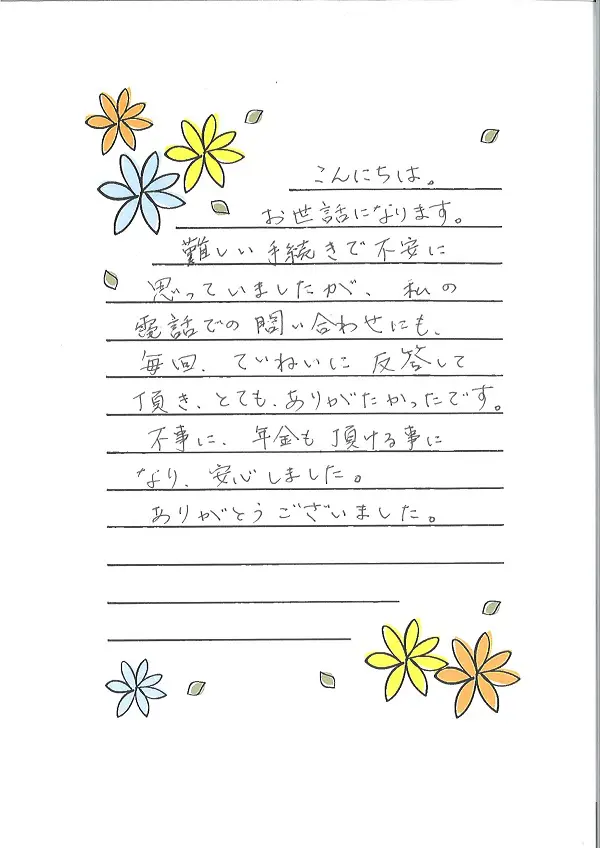 こんにちは。
お世話になります。
難しい手続きで不安に
思っていましたが、私の
電話での問い合わせにも、
毎回、ていねいに反答して
頂き、とても、ありがたかったです。
不事に、年金も頂ける事に
なり、安心しました。
ありがとうございました。